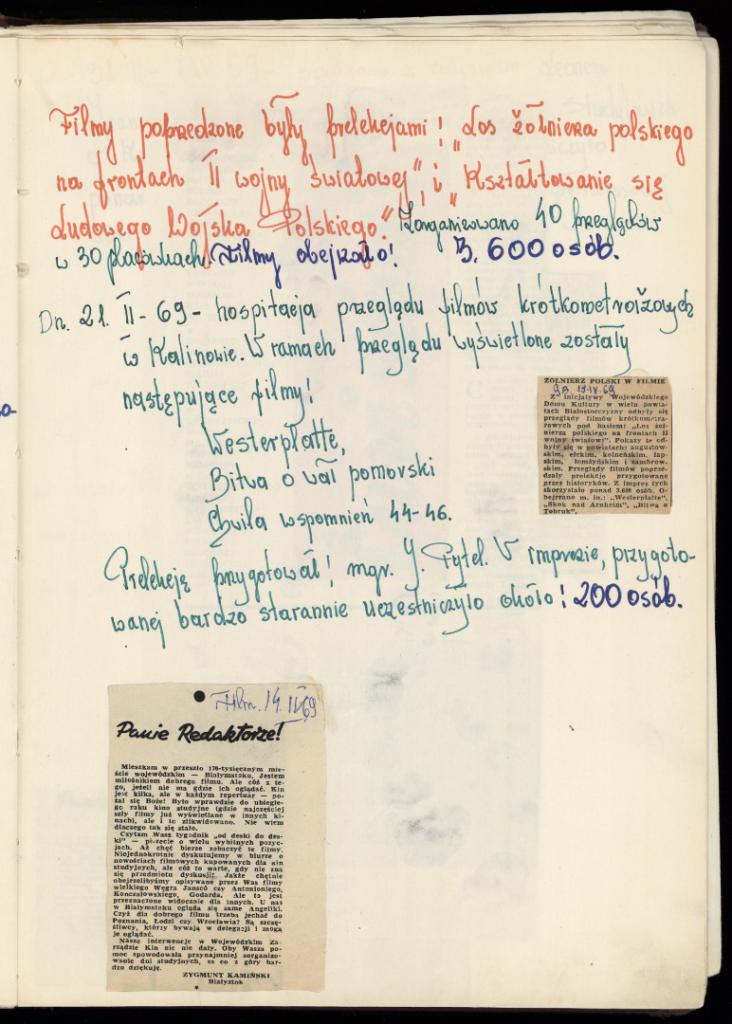 Filmy poprzedzone były prelekcjami! „Los żołnierza polskiego
na frontach II wojny światowej”, i „Kształtowanie się
Ludowego Wojska Polskiego.” Zorganizowano 40 przeglądów
w 30 placówkach. Filmy obejrzało! 3.600 osób.
Dn. 21. II - 69 - hospitacja przeglądu filmów krótkometrażowych
w Kalinowie. W ramach przeglądu wyświetlone zostały
następujące filmy!
Westerplatte,
Bitwa o wał pomorski
Chwila wspomnień 44-46.
Prelekcję przygotował! mgr. J. Pytel. W imprezie, przygoto-
wanej bardzo starannie uczestniczyło około! 200 osób.
ŻOŁNIERZ POLSKI W FILMIE
G.B. 19.IV.69
Z inicjatywy Wojewódzkiego
Domu Kultury w wielu powia-
tach Białostocczyzny odbyły się
przeglądy filmów krótkometra-
żowych pod hasłem: „Los żoł-
nierza polskiego na frontach II
wojny światowej”. Pokazy te od-
były się w powiatach: augustow-
skim, ełckim, kolneńskim, łap-
skim, łomżyńskim i zambrow-
skim. Przeglądy filmów poprze-
dzały prelekcje przygotowane
przez historyków. Z imprez tych
skorzystało ponad 3.600 osób. O-
bejrzano m. in.: „Westerplatte”,
„Skok nad Arnheim”, „Bitwa o
Tobruk”.
Film. 14. II 69
Panie Redaktorze!
Mieszkam w przeszło 170-tysięcznym mie-
ście wojewódzkim — Białymstoku. Jestem
miłośnikiem dobrego filmu. Ale cóż z te-
go, jeżeli nie ma gdzie ich oglądać. Kin
jest kilka, ale w każdym repertuar — po-
żal się Boże! Było wprawdzie do ubiegłe-
go roku kino studyjne (gdzie najczęściej
szły filmy już wyświetlane w innych ki-
nach), ale i to zlikwidowano. Nie wiem
dlaczego tak się stało.
Czytam Wasz tygodnik „od deski do des-
ki” — piszecie o wielu wybitnych pozyc-
jach. Aż chęć bierze zobaczyć te filmy.
Niejednokrotnie dyskutujemy w biurze o
nowościach filmowych kupowanych dla kin
studyjnych, ale cóż to warte, gdy nie zna
się przedmiotu dyskusji. Jakże chętnie
obejrzelibyśmy opisywane przez Was filmy
wielkiego Węgra Jancsó czy Antonioniego,
Konczałowskiego, Godarda. Ale to jest
przeznaczone widocznie dla innych. U nas
w Białymstoku ogląda się same Angeliki.
Czyż dla dobrego filmu trzeba jechać do
Poznania, Łodzi czy Wrocławia? Są szczę-
śliwcy, którzy bywają w delegacji i mogą
je oglądać.
Nasze interwencje w Wojewódzkim Za-
rządzie Kin nic nie dały. Oby Wasza po-
moc spowodowała przynajmniej zorganizo-
wanie dni studyjnych, za co z góry bar-
dzo dziękuję.
ZYGMUNT KAMIŃSKI
Białystok